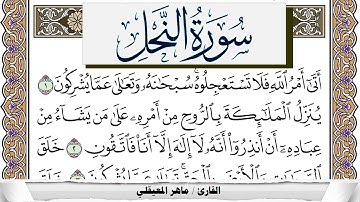 سُورَةُ النَّحْلِ
أَتَىٰٓ أَمْرُ ٱللَّهِ فَلَا تَسْتَعْجِلُوهُ سُبْحَٰنَهُۥ وَتَعَٰلَىٰ عَمَّا يُشْرِكُونَ ١
يُنَزِّلُ ٱلْمَلَٰٓئِكَةَ بِٱلرُّوحِ مِنْ أَمْرِهِۦ عَلَىٰ مَن يَشَآءُ مِنْ
عِبَادِهِۦٓ أَنْ أَنذِرُوٓا۟ أَنَّهُۥ لَآ إِلَٰهَ إِلَّآ أَنَا۠ فَٱتَّقُونِ ٢ خَلَقَ
القارئ / ماهر المعيقلي